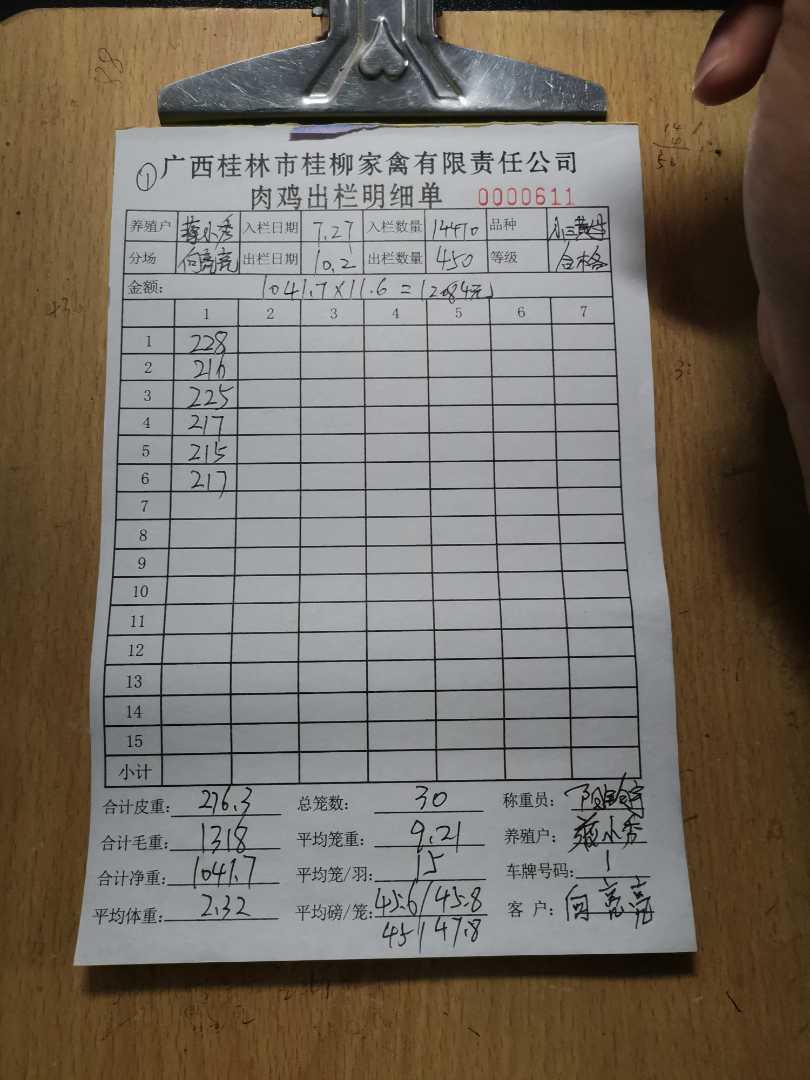 ① 广西桂林市桂柳家禽有限责任公司
肉鸡出栏明细单 0000611
养殖户 蒋小秀 入栏日期 7.27 入栏数量 14470 品种
分场 向亮亮 出栏日期 10.2 出栏数量 450 等级 合格
金额: 1041.7×11.6=12084元
1 2 3 4 5 6 7
1 228
2 216
3 225
4 217
5 215
6 217
7
8
9
10
11
12
13
14
15
小计
合计皮重: 276.3 总笼数: 30 称重员:
合计毛重: 1318 平均笼重: 9.21 养殖户: 蒋小秀
合计净重: 1041.7 平均笼/羽: 15 车牌号码: 1
平均体重: 2.32 平均磅/笼: 45.6/45.8 客 户: 向亮亮
45/47.8